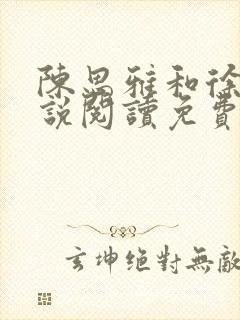 陳思雅和徐
說閱讀免費
玄坤絕對無敵